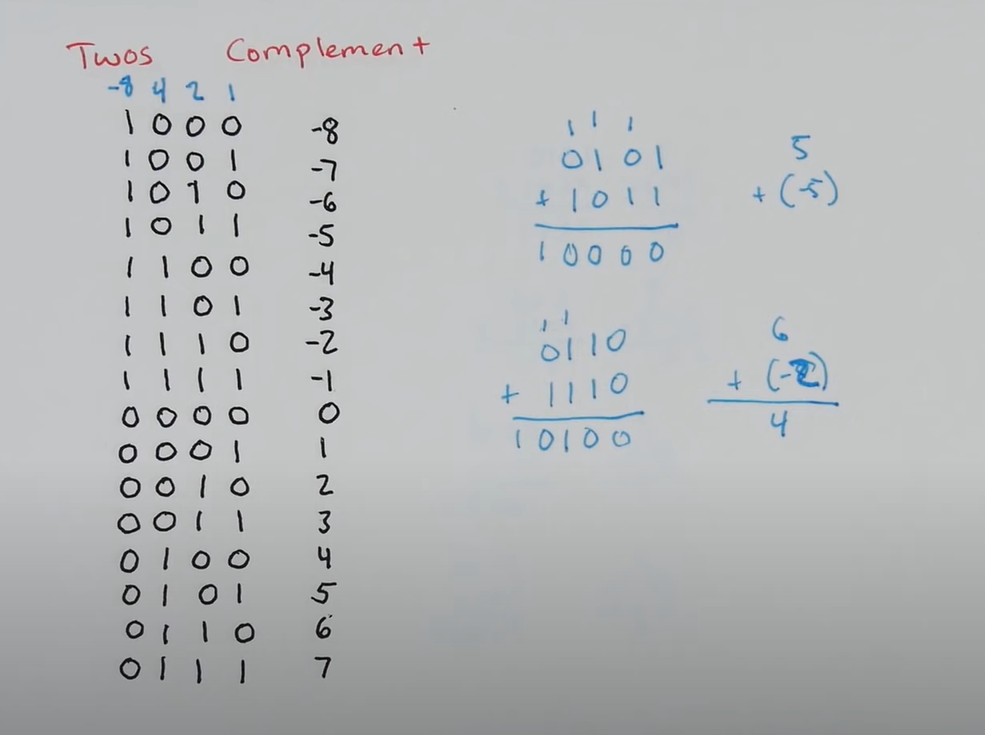 Twos Complement
-8 4 2 1
1 0 0 0 -8
1 0 0 1 -7
1 0 1 0 -6
1 0 1 1 -5
1 1 0 0 -4
1 1 0 1 -3
1 1 1 0 -2
1 1 1 1 -1
0 0 0 0 0
0 0 0 1 1
0 0 1 0 2
0 0 1 1 3
0 1 0 0 4
0 1 0 1 5
0 1 1 0 6
0 1 1 1 7
1 1 1
0101
+ 1011
10000
5
+ (-5)
1 1
0110
+ 1110
10100
6
+ (-2)
4